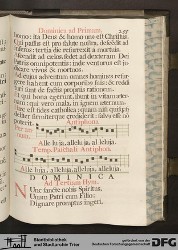 Dominica ad Primam.
homo: ita Deus & homo unus est Christus.
Qui passus est pro salute nostra, descendit ad
inferos: tertia die resurrexit a mortuis.
Ascendit ad caelos, sedet ad dexteram Dei
Patris omnipotentis: inde venturus est judicare vivos & mortuos.
Ad cujus adventum omnes homines resurgere
habent cum corporibus suis: & reddituri
sunt de factis propriis rationem.
Et qui bona egerunt, ibunt in vitam
aeternam: qui vero mala, in ignem aeternum.
Haec est fides catholica, quam nisi quisque
fideliter firmiterque crediderit: salvus esse non poterit.
Antiphona.
Alleluja, alleluja, alleluja.
Temp. Paschali Antiphona.
Alleluja, alleluja, alleluja, alleluja.
DOMINI
Ad Tertiam Hym.
Nunc sancte nobis Spiritus,
Unum Patri cum Filio:
Dignare promptus ingeri,
Staatsbibliothek
und Staatliche Archiv Trier
gefördert von der
DFG